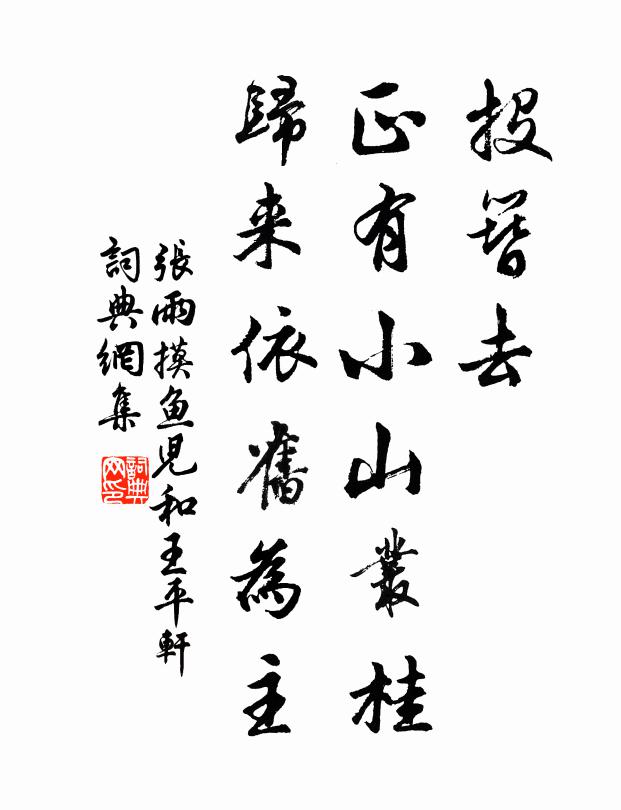 投簪去
正有小山叢桂
歸来依舊為主
張雨摸魚児和王平軒
詞典網集
詞典